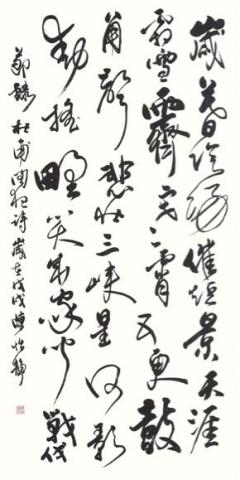 歲暮陰陽催短景天涯
霜雪霽寒宵五更鼓
角聲悲壯三峽星河影
動搖野哭千家聞戰伐
節錄杜甫閣夜詩歲在戊戌